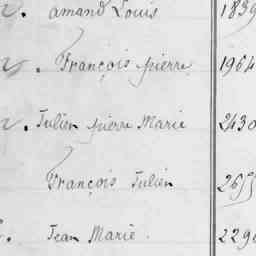 amand Louis 1839
François pierre 1964
Julien pierre Marie 2430
François Julien 2655
Jean Marie. 229